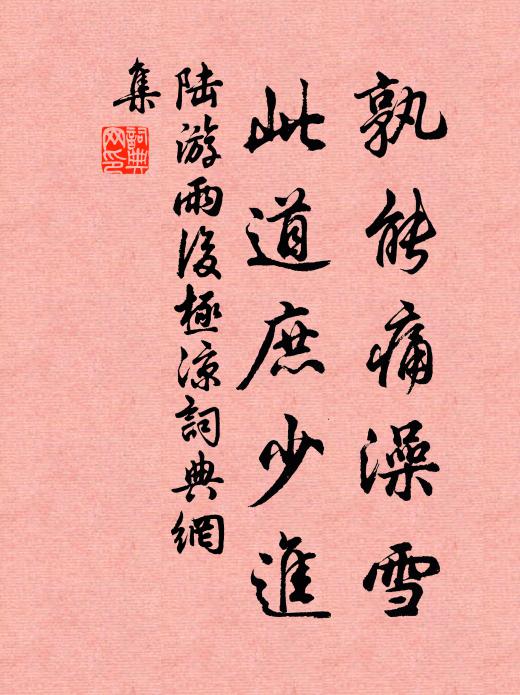 孰能痛澡雪
此道庶少進
陸游雨後極涼詞典網
集
詞典
网印